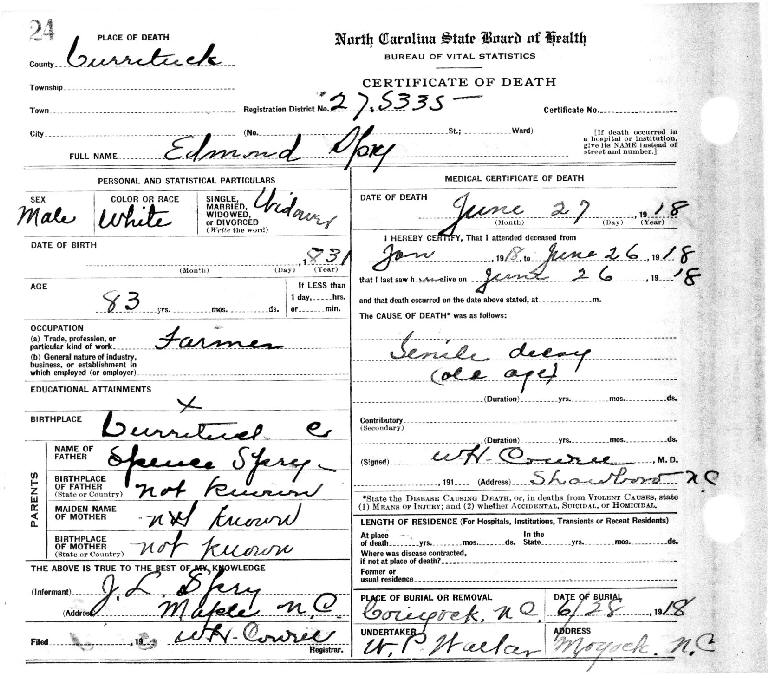 24
PLACE OF DEATH
North Carolina State Board of Health
BUREAU OF VITAL STATISTICS
CERTIFICATE OF DEATH
County Currituck
Township
Town
Registration District No. 27.5335
Certificate No.
City
(No.
St.;
Ward)
[If death occurred in a hospital or institution, give its NAME instead of street and number.]
FULL NAME Edmond Spry
PERSONAL AND STATISTICAL PARTICULARS
SEX
Male
COLOR OR RACE
White
SINGLE, MARRIED, WIDOWED, or DIVORCED
(Write the word)
Widower
DATE OF BIRTH
, 1831
(Month) (Day) (Year)
AGE
83 yrs. mos. ds.
If LESS than
1 day, hrs.
or min.
OCCUPATION
(a) Trade, profession, or particular kind of work
Farmer
(b) General nature of industry, business, or establishment in which employed (or employer)
EDUCATIONAL ATTAINMENTS
x
BIRTHPLACE
Currituck C
PARENTS
NAME OF FATHER
Spence Spry
BIRTHPLACE OF FATHER
(State or Country)
not known
MAIDEN NAME OF MOTHER
not known
BIRTHPLACE OF MOTHER
(State or Country)
not known
THE ABOVE IS TRUE TO THE BEST OF MY KNOWLEDGE
(Informant) J. L. Spry
(Address) Maple N.C.
Filed 19
WH. Cowell
Registrar.
MEDICAL CERTIFICATE OF DEATH
DATE OF DEATH
June 27, 1918
(Month) (Day) (Year)
I HEREBY CERTIFY, That I attended deceased from
Jan, 1918, to June 26, 1918
that I last saw h alive on June 26, 1918
and that death occurred on the date above stated, at m.
The CAUSE OF DEATH* was as follows:
Senile decay
(old age)
(Duration) yrs. mos. ds.
Contributory
(Secondary)
(Duration) yrs. mos. ds.
(Signed) WH Cowell, M. D.
, 191 (Address) Shawboro NC
*State the DISEASE CAUSING DEATH, or, in deaths from VIOLENT CAUSES, state
(1) MEANS OF INJURY; and (2) whether ACCIDENTAL, SUICIDAL, or HOMICIDAL.
LENGTH OF RESIDENCE (For Hospitals, Institutions, Transients or Recent Residents)
At place of death yrs. mos. ds.
In the State yrs. mos. ds.
Where was disease contracted, if not at place of death?
Former or usual residence
PLACE OF BURIAL OR REMOVAL
Coinjock, NC
DATE OF BURIAL
6/28, 1918
UNDERTAKER
W. P. Walker
ADDRESS
Moyock. N.C